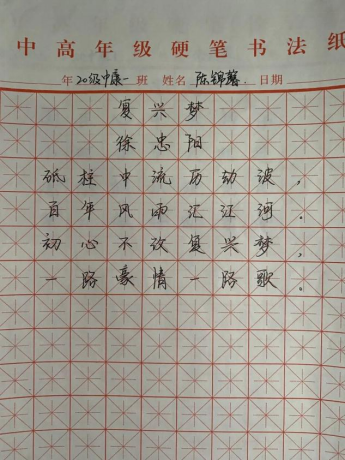 中高年级硬笔书法纸
年20级中康一班 姓名陈锦馨. 日期
复兴梦
徐忠阳
砥柱中流历劫波，
百年风雨汇江河.
初心不改复兴梦，
一路豪情一路歌。